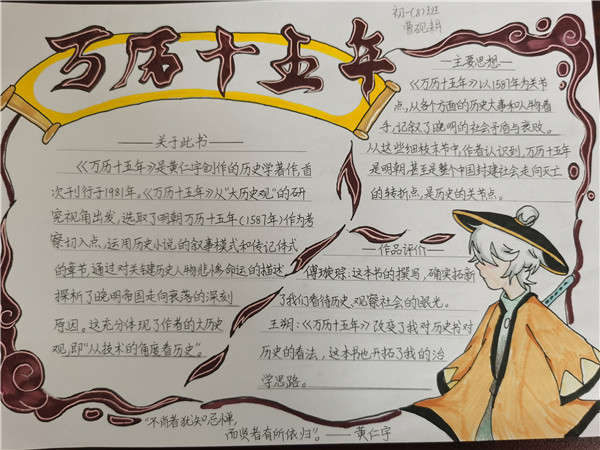 初一(8)班
曹砚耕
万历十五年
关于此书
《万历十五年》是黄仁宇创作的历史学著作,首
次刊行于1981年。《万历十五年》从"大历史观"的研
究视角出发,选取了明朝万历十五年(1587年)作为考
察切入点,运用历史小说的叙事模式和传记体式
的章节,通过对关键历史人物悲惨命运的描述,
探析了晚明帝国走向衰落的深刻
原因。这充分体现了作者的大历史
观,即"从技术的角度看历史"。
主要思想
《万历十五年》以1587年为关节
点,从各个方面的历史大事和人物着
手,记叙了晚明的社会矛盾与衰败。
从这些细枝末节中,作者认识到,万历十五年
是明朝,甚至是整个中国封建社会走向灭亡
的转折点,是历史的关节点。
作品评价
傅璇琮:这本书的撰写,确实拓新
了我们看待历史、观察社会的眼光。
王朔:《万历十五年》改变了我对历史书对
历史的看法,这本书也开拓了我的治
学思路。
"不肖者犹知忌惮,
而贤者有所依归"。——黄仁宇